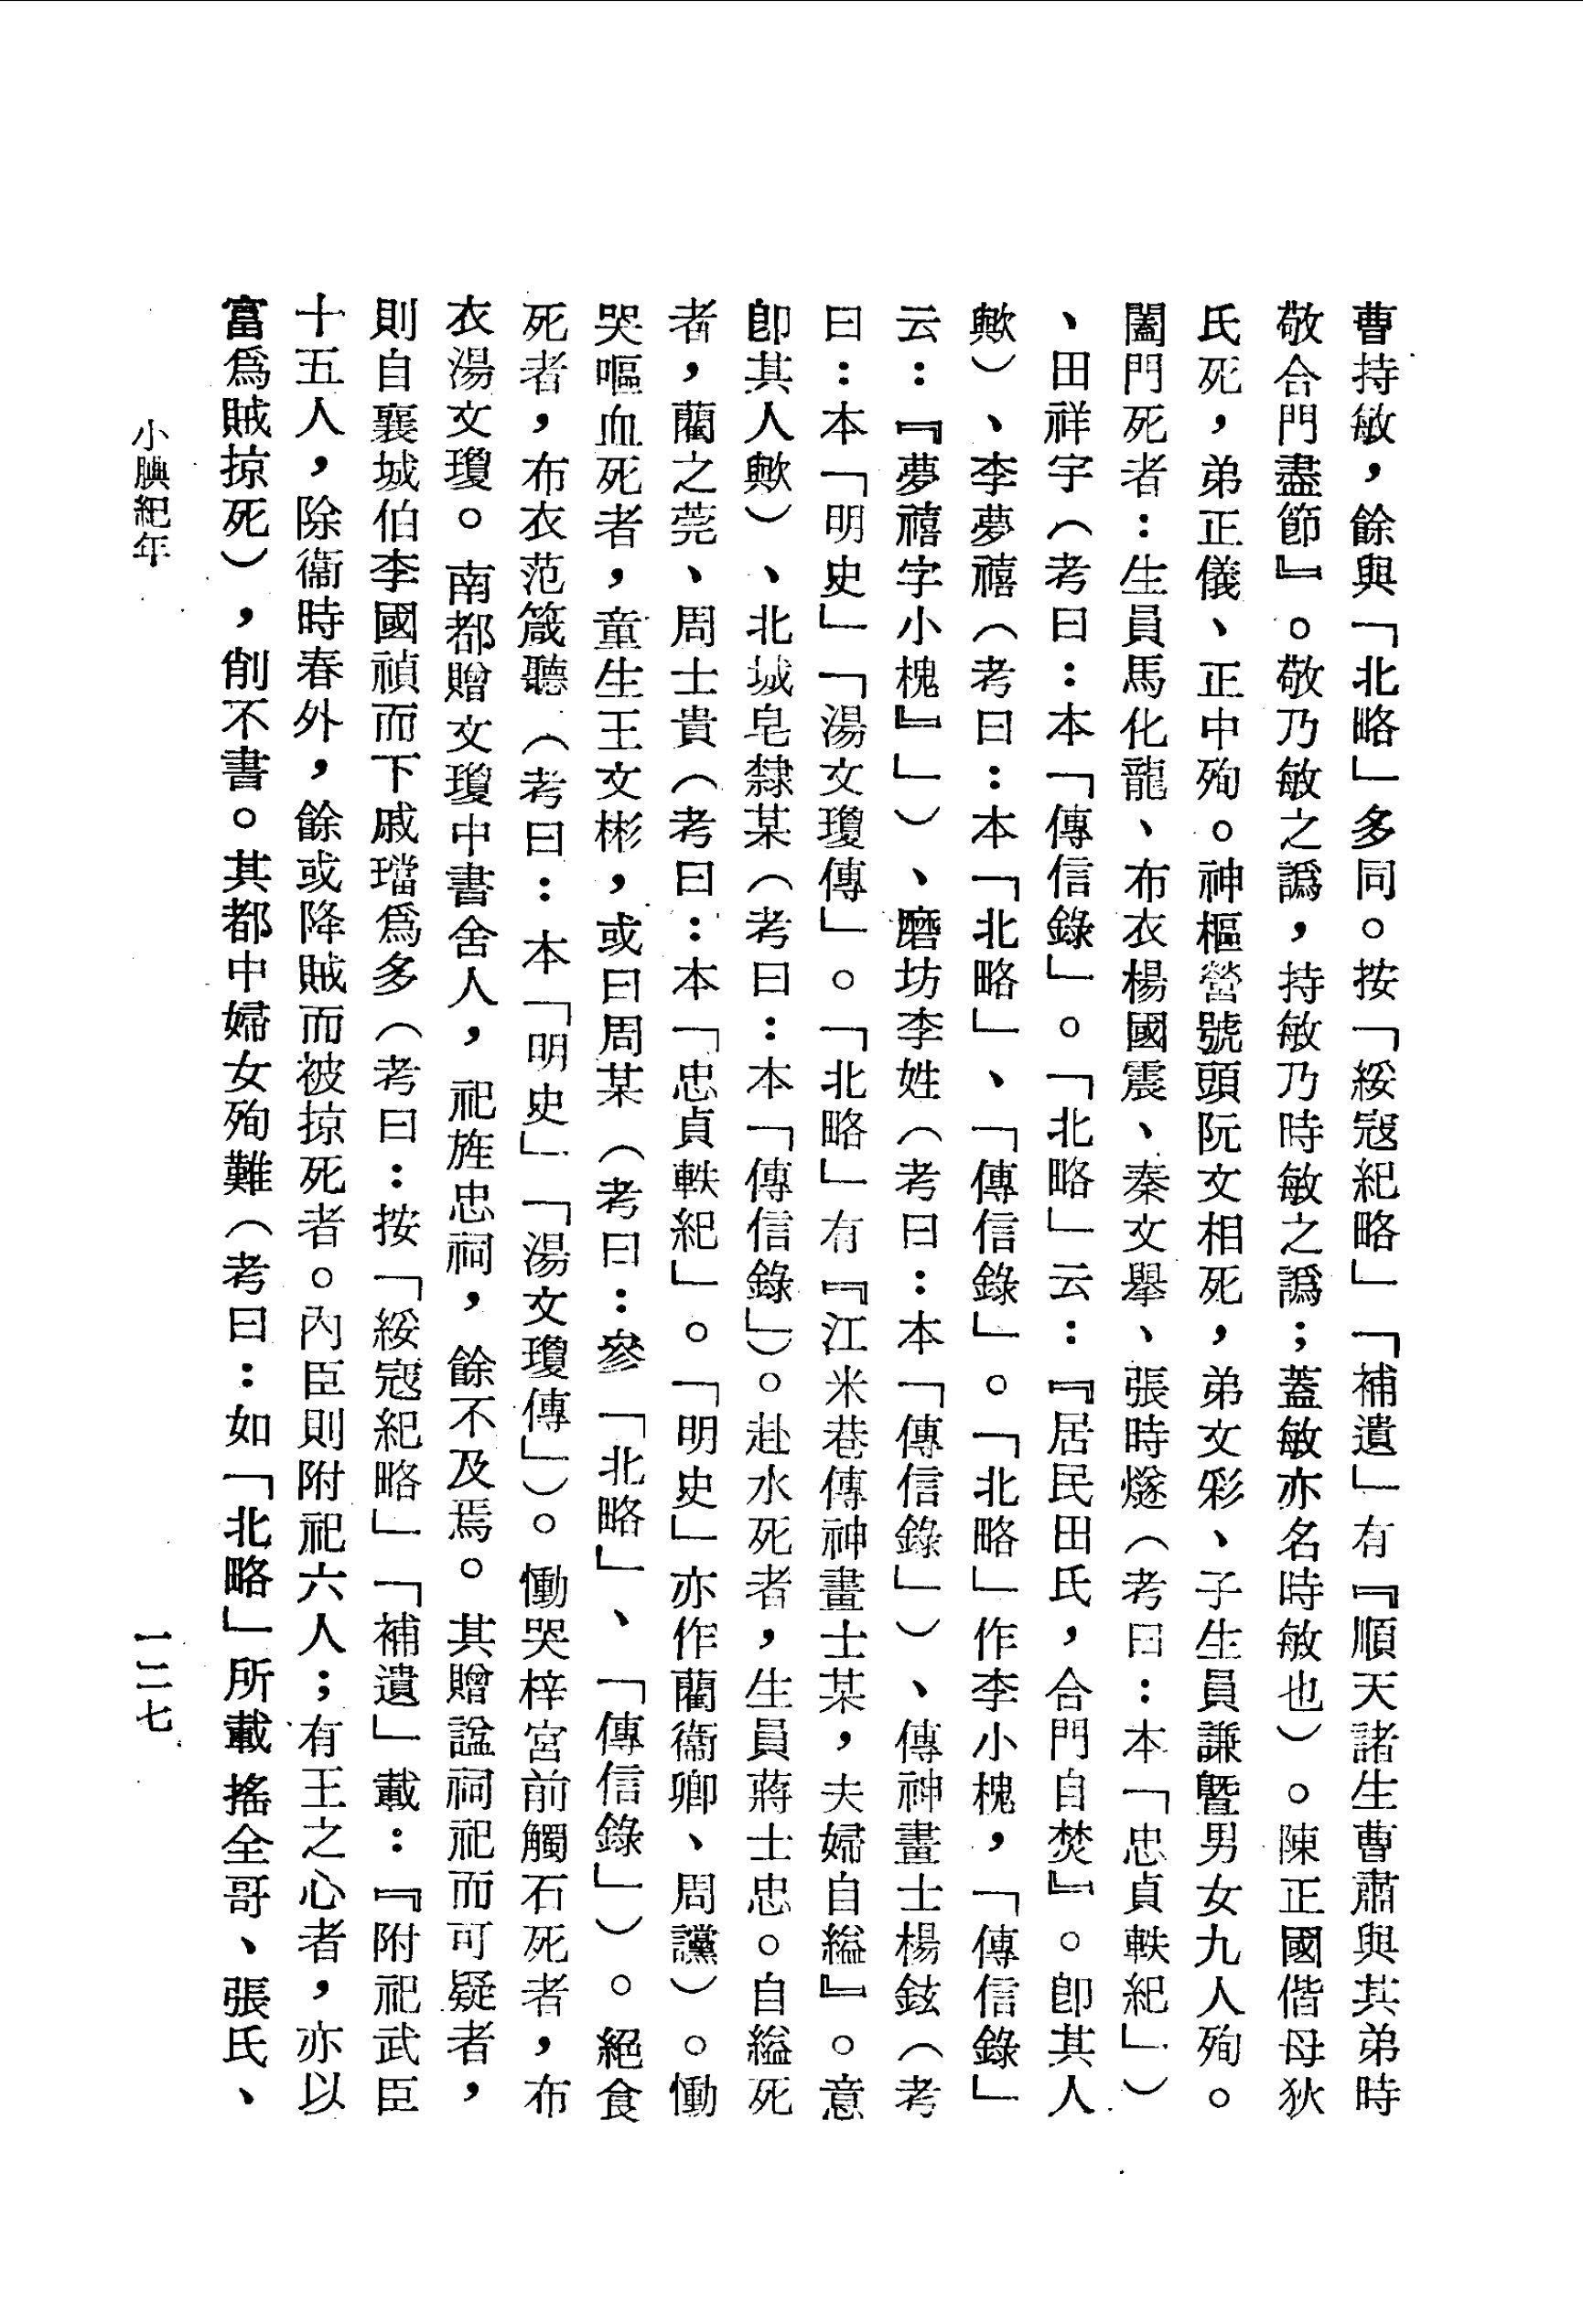 曹持敏，餘與「北略」多同。按「綏寇紀略」「補遺」有『順天諸生曹肅與其弟時
敬合門盡節』。敬乃敏之譌，持敏乃時敏之譌；蓋敏亦名時敏也）。陳正國偕母狄
氏死，弟正儀、正中殉。神樞營號頭阮文相死，弟文彩、子生員謙曁男女九人殉。
闔門死者：生員馬化龍、布衣楊國震、秦文舉、張時燧（考曰：本「忠貞軼紀」）
、田祥宇（考曰：本「傳信錄」。「北略」云：『居民田氏，合門自焚』。卽其人
歟）、李夢禧（考曰：本「北略」、「傳信錄」。「北略」作李小槐，「傳信錄」
云：『夢禧字小槐』」）、磨坊李姓（考曰：本「傳信錄」）、傳神畫士楊鉉（考
曰：本「明史」「湯文瓊傳」。「北略」有『江米巷傳神畫士某，夫婦自縊』。意
卽其人歟）、北城皂隸某（考曰：本「傳信錄」）。赴水死者，生員蔣士忠。自縊死
者，藺之莞、周士貴（考曰：本「忠貞軼紀」。「明史」亦作藺衞卿、周讜）。慟
哭嘔血死者，童生王文彬，或曰周某（考曰：參「北略」、「傳信錄」）。絕食
死者，布衣范箴聽（考曰：本「明史」「湯文瓊傳」）。慟哭梓宮前觸石死者，布
衣湯文瓊。南都贈文瓊中書舍人，祀旌忠祠，餘不及焉。其贈諡祠祀而可疑者，
則自襄城伯李國禎而下戚璫爲多（考曰：按「綏寇紀略」「補遺」載：『附祀武臣
十五人，除衞時春外，餘或降賊而被掠死者。內臣則附祀六人；有王之心者，亦以
富爲賊掠死），削不書。其都中婦女殉難（考曰：如「北略」所載搖全哥、張氏、
小腆紀年
一二七